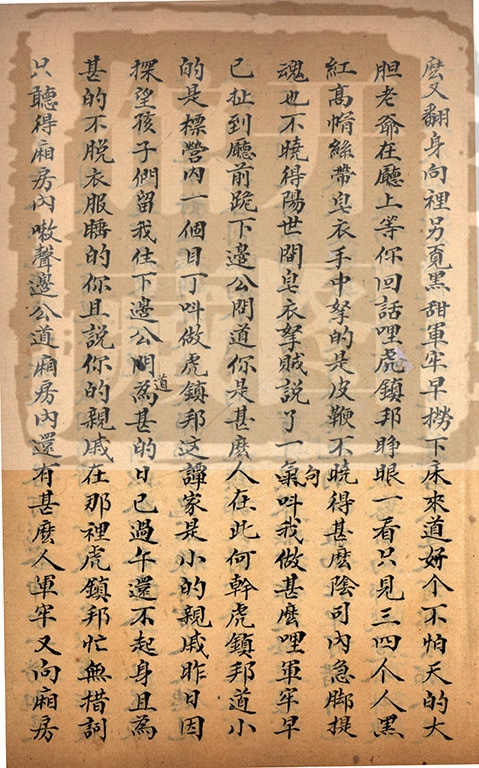 麽又翻身向裡另覔黑甜軍牢早撈下床來道好个不怕天的大
胆老爺在廳上等你回話哩虎鎮邦睜眼一看只見三四个人黑
紅高帽絲帶皂衣手中拏的是皮鞭不曉得甚麽陰司內急脚提
魂也不曉得陽世間皂衣拏賊說了一句氣叫我做甚麽哩軍牢早
已扯到廳前跪下邊公問道你是甚麽人在此何幹虎鎮邦道小
的是標營內一個目丁叫做虎鎮邦這譚家是小的親戚昨日因
探望孩子們留我住下邊公問道爲甚的日已過午還不起身且爲
甚的不脱衣服睡的你且説你的親戚在那裡虎鎮邦忙無措詞
只聽得廂房內嗽聲邊公道廂房內還有甚麽人軍牢又向廂房